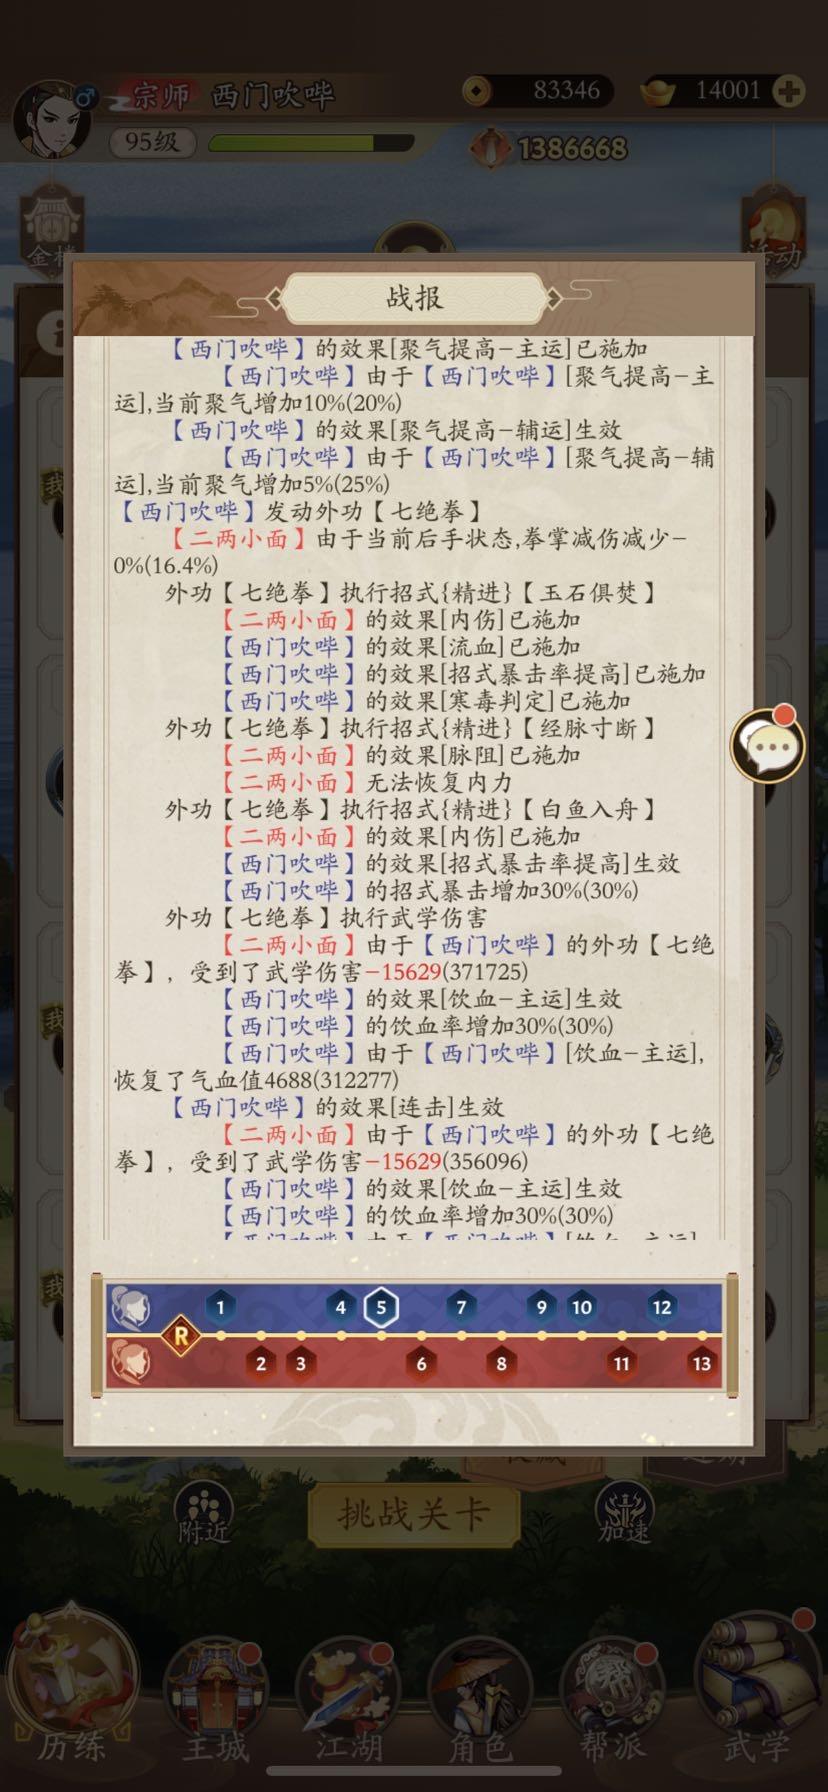 宗师 西门吹哔
83346
14001
95级
1386668
活动
战报
【西门吹哔】的效果[聚气提高-主运]已施加
【西门吹哔】由于【西门吹哔】[聚气提高-主
运],当前聚气增加10%(20%)
【西门吹哔】的效果[聚气提高-辅运]生效
【西门吹哔】由于【西门吹哔】[聚气提高-辅
运],当前聚气增加5%(25%)
【西门吹哔】发动外功【七绝拳】
【二两小面】由于当前后手状态,拳掌减伤减少-
0%(16.4%)
外功【七绝拳】执行招式{精进}【玉石俱焚】
【二两小面】的效果[内伤]已施加
【西门吹哔】的效果[流血]已施加
【西门吹哔】的效果[招式暴击率提高]已施加
【西门吹哔】的效果[寒毒判定]已施加
外功【七绝拳】执行招式{精进}【经脉寸断】
【二两小面】的效果[脉阻]已施加
【二两小面】无法恢复内力
外功【七绝拳】执行招式{精进}【白鱼入舟】
【二两小面】的效果[内伤]已施加
【西门吹哔】的效果[招式暴击率提高]生效
【西门吹哔】的招式暴击增加30%(30%)
外功【七绝拳】执行武学伤害
【二两小面】由于【西门吹哔】的外功【七绝
拳】，受到了武学伤害-15629(371725)
【西门吹哔】的效果[饮血-主运]生效
【西门吹哔】的饮血率增加30%(30%)
【西门吹哔】由于【西门吹哔】[饮血-主运],
恢复了气血值4688(312277)
【西门吹哔】的效果[连击]生效
【二两小面】由于【西门吹哔】的外功【七绝
拳】，受到了武学伤害-15629(356096)
【西门吹哔】的效果[饮血-主运]生效
【西门吹哔】的饮血率增加30%(30%)
1 4 5 7 9 10 12
R
2 3 6 8 11 13
附近
挑战关卡
加速
历练 主城 江湖 角色 帮派 武学